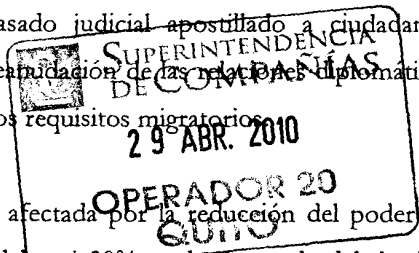 asado judicial apostillado a ciudadan
SUPERINTENDENCIA
DE COMPAÑÍAS
eanudación de las relaciones diplomáti
os requisitos migratorios
29 ABR. 2010
OPERADOR 20
QUITO
afectada por la reducción del poder